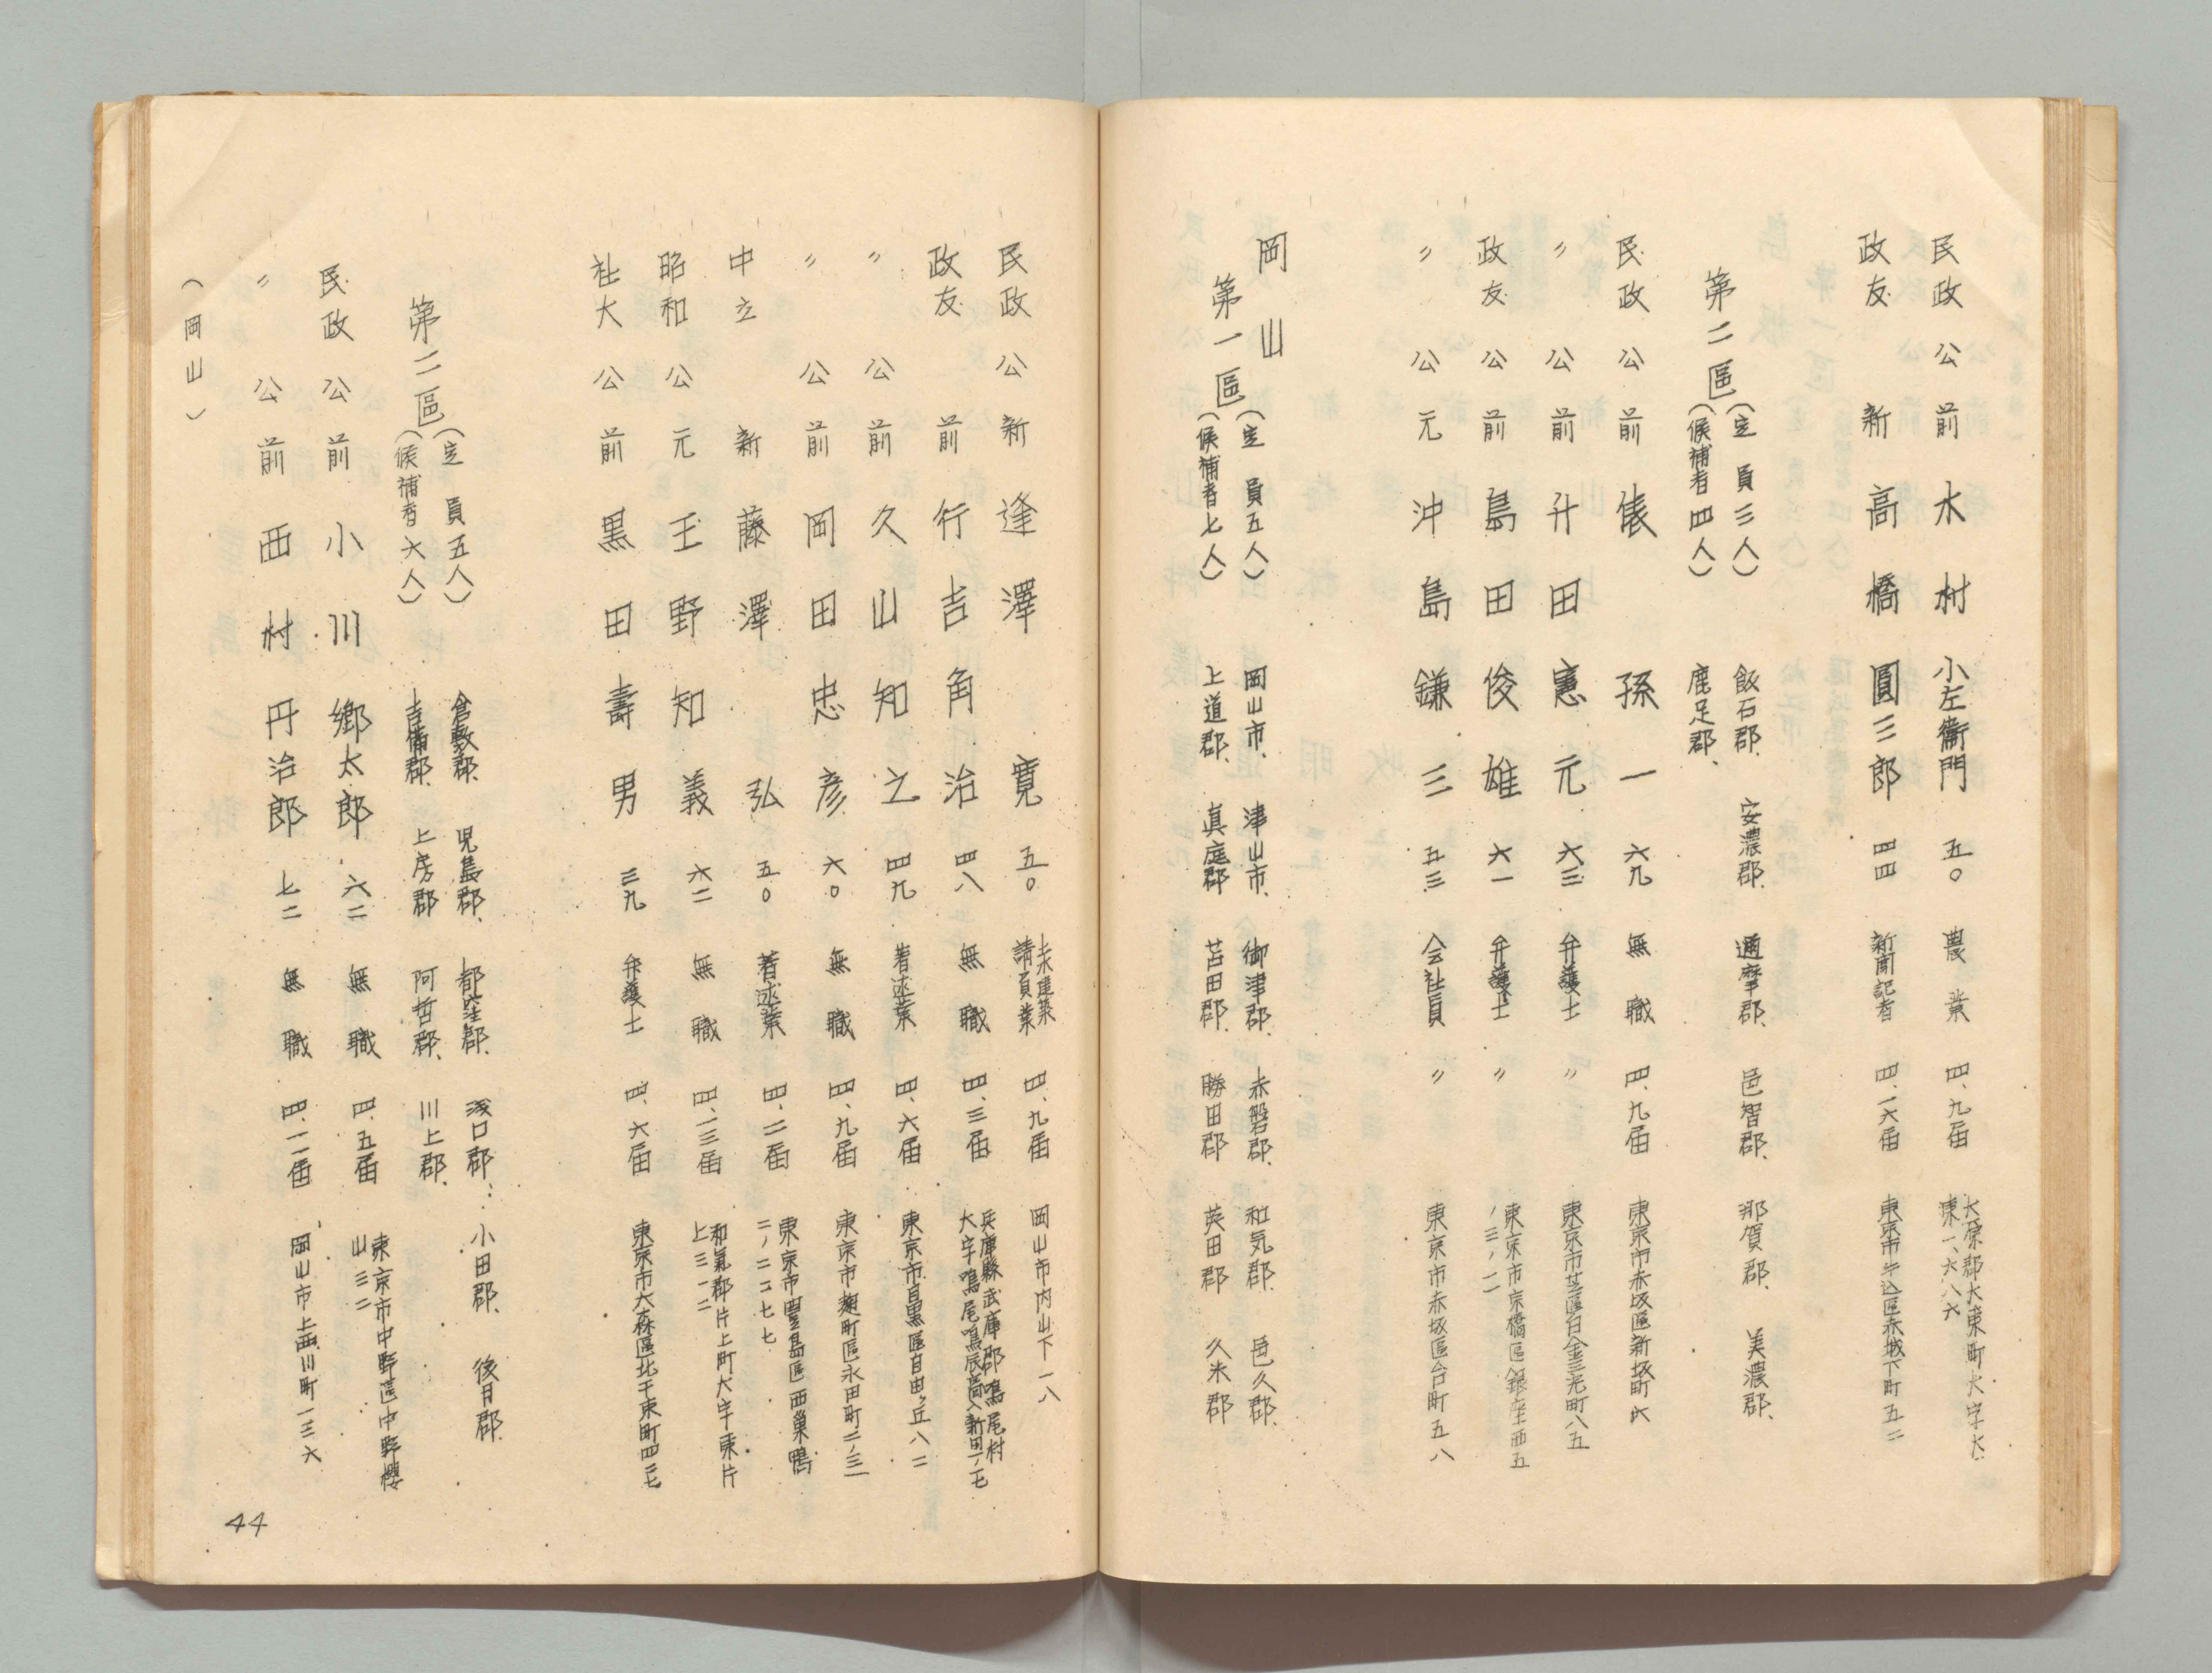 民政 公 前 木村小左衞門 五〇 農業 四、九届 大原郡大東町大字大東一、六八六
政友 新 高橋圓三郎 四四 新聞記者 四、一六届 東京市牛込區赤城下町五二
第二區 (定員三人) (候補者四人)
飯石郡、安濃郡、邇摩郡、邑智郡、那賀郡、美濃郡、
鹿足郡、
民政 公 前 俵孫一 六九 無職 四、九届 東京市赤坂區新坂町六
〃 公 前 升田憲元 六三 弁護士 〃 東京市芝區白金三光町八五
政友 公 前 島田俊雄 六一 弁護士 〃 東京市京橋區銀座西五ノ三ノ二
〃 公 元 沖島鎌三 五三 会社員 〃 東京市赤坂區台町五八
岡山
第一區 (定員五人) (候補者七人)
岡山市、津山市、御津郡、赤磐郡、和気郡、邑久郡、
上道郡、眞庭郡 苫田郡、勝田郡 英田郡 久米郡
民政 公 新 逢澤寛 五〇 土木建築請負業 四、九届 岡山市内山下一八
政友 前 行吉角治 四八 無職 四、三届 兵庫縣武庫郡鳴尾村大字鳴尾鳴辰
〃 公 前 久山知之 四九 著述業 四、六届 東京市目黒區自由ヶ丘八二
〃 公 前 岡田忠彦 六〇 無職 四、九届 東京市麹町區永田町二ノ三
中立 新 藤澤弘 五〇 著述業 四、二届 東京市豐島區西巣鴨二ノ二二七七
昭和 公 元 王野知義 六二 無職 四、一三届 和氣郡片上町大字東片上三一二
社大 公 前 黒田壽男 三九 弁護士 四、六届 東京市大森區北千束町四二七
第二區 (定員五人) (候補者六人)
倉敷郡、児島郡、都窪郡、浅口郡、小田郡、後月郡、
吉備郡、上房郡 阿哲郡、川上郡、
民政 公 前 小川鄉太郎 六二 無職 四、五届 東京市中野區中野櫻山三二
〃 公 前 西村丹治郎 七二 無職 四、一一届 岡山市上西川町一三六
(岡山)
44